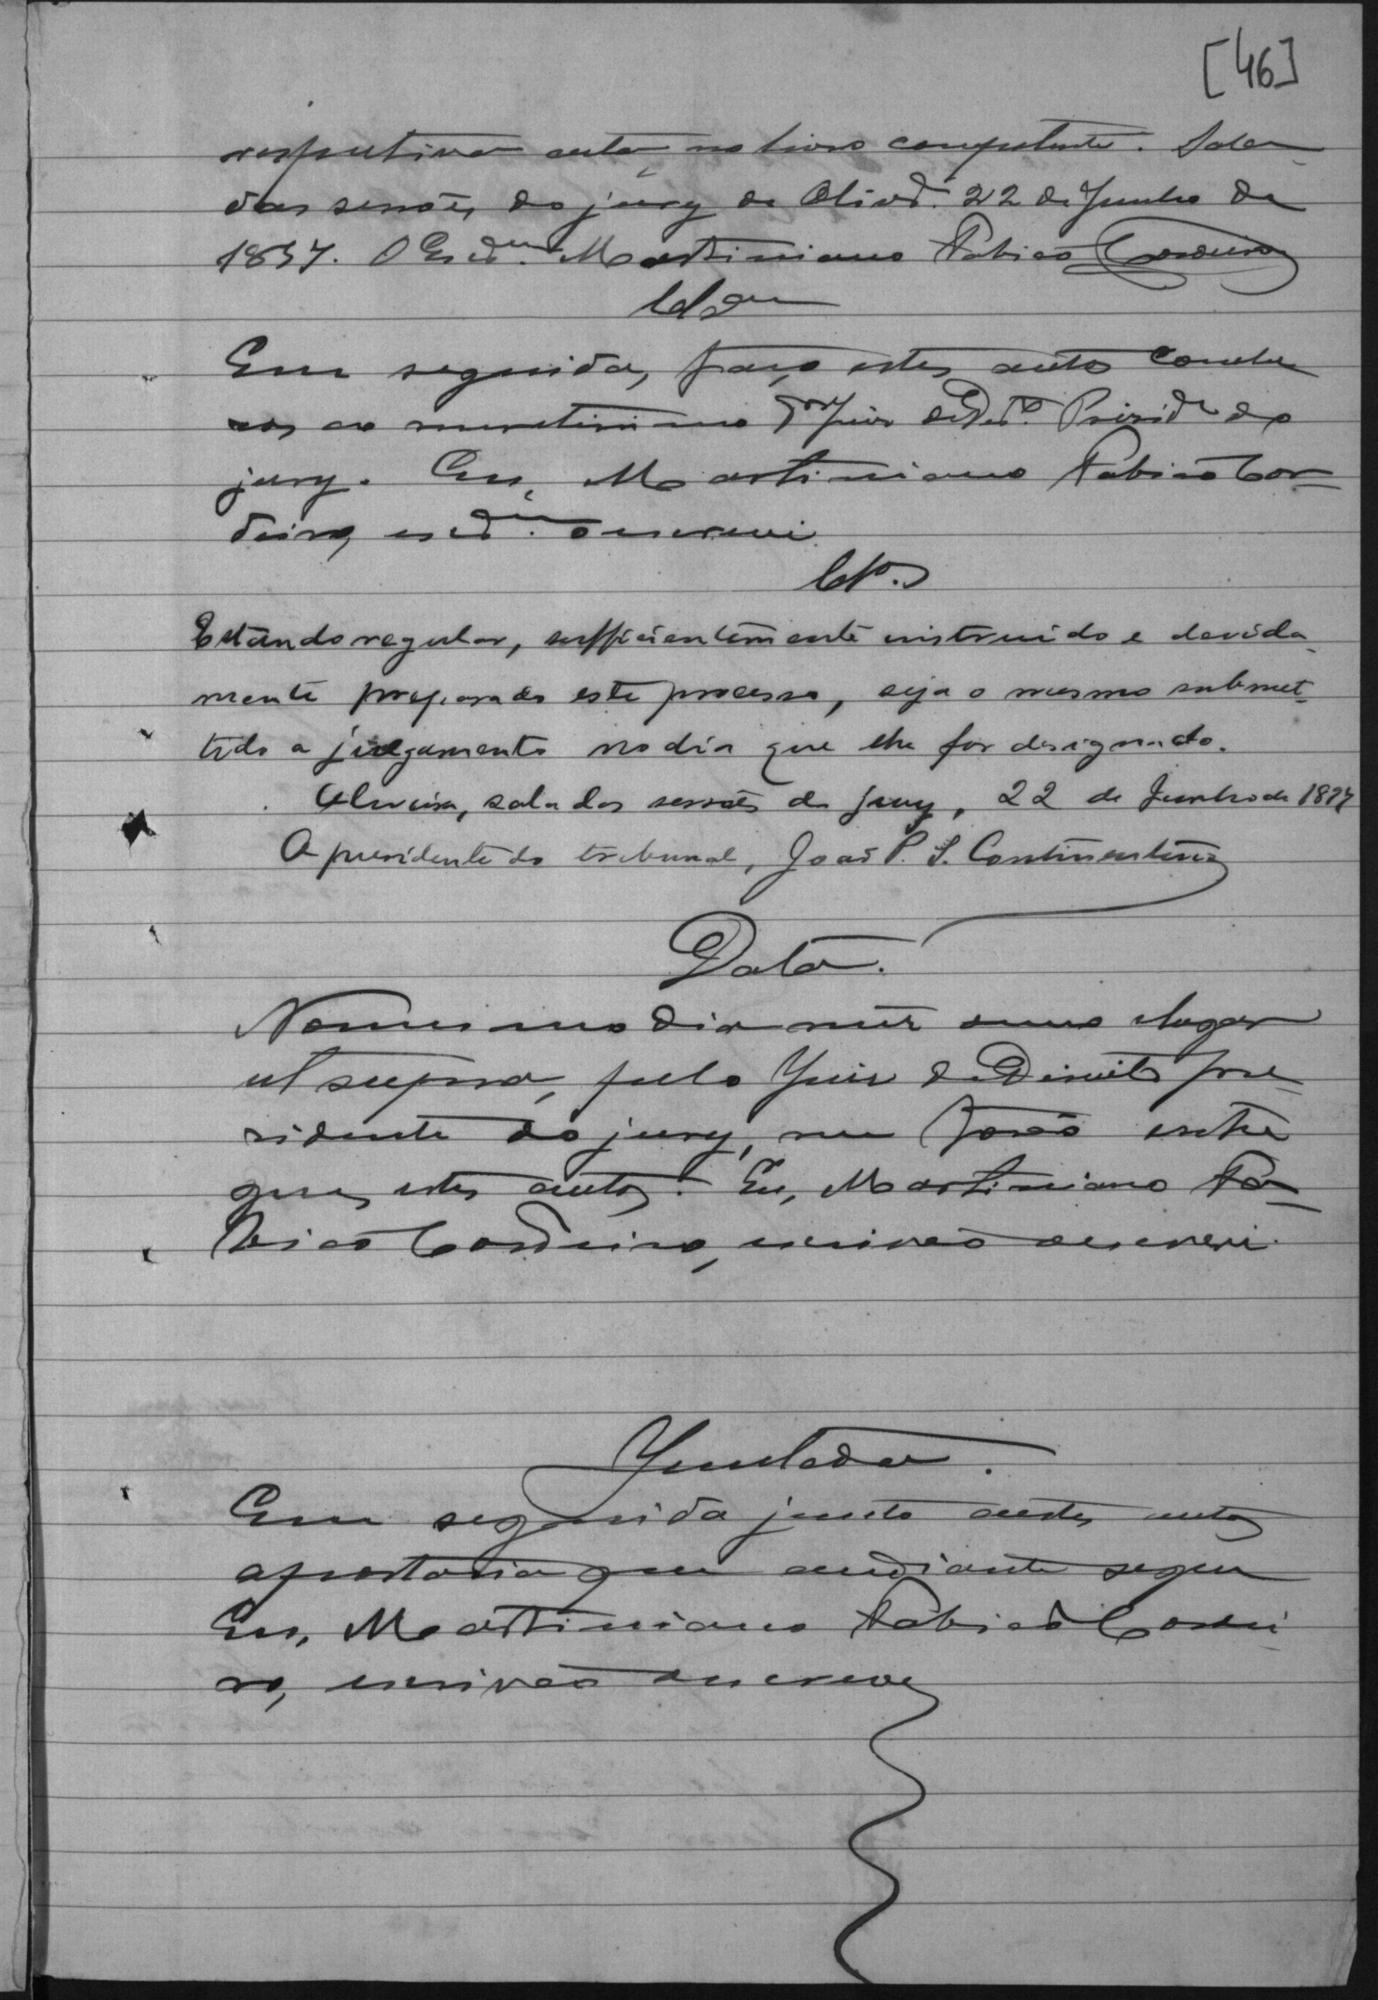 [46]
respectiva acta, no livro competente. Sala
das sessões do jury de Olivrª. 22 de Junho de
1897. O Escram. Martiniano Fabião Cordeiro
Em seguida, faço estes autos conclu
sos ao meretissimo Dor Juiz de Dirto. Preside do
jury. Eu, Martiniano Fabião Cor=
deiro, escram. o escrevi
Cls.
Estando regular, sufficientemente instruido e devida
mente preparado este processo, seja o mesmo submet-
tido a julgamento no dia que lhe for designado.
Oliveira, sala das sessões do jury, 22 de Junho de 1897
O presidente do tribunal, João P. S. Continentino
Data.
No mesmo dia mez anno e lugar
ut supra, pelo Juiz de Direito pre=
sidente do jury, me forão entre
gues estes autos. Eu, Martiniano Fa=
bião Cordeiro, escrivão o escrevi.
Juntada.
Em seguida junto a estes autos
a portaria que adiante segue
Eu, Martiniano Fabião Cordei
ro, escrivão o escrevi